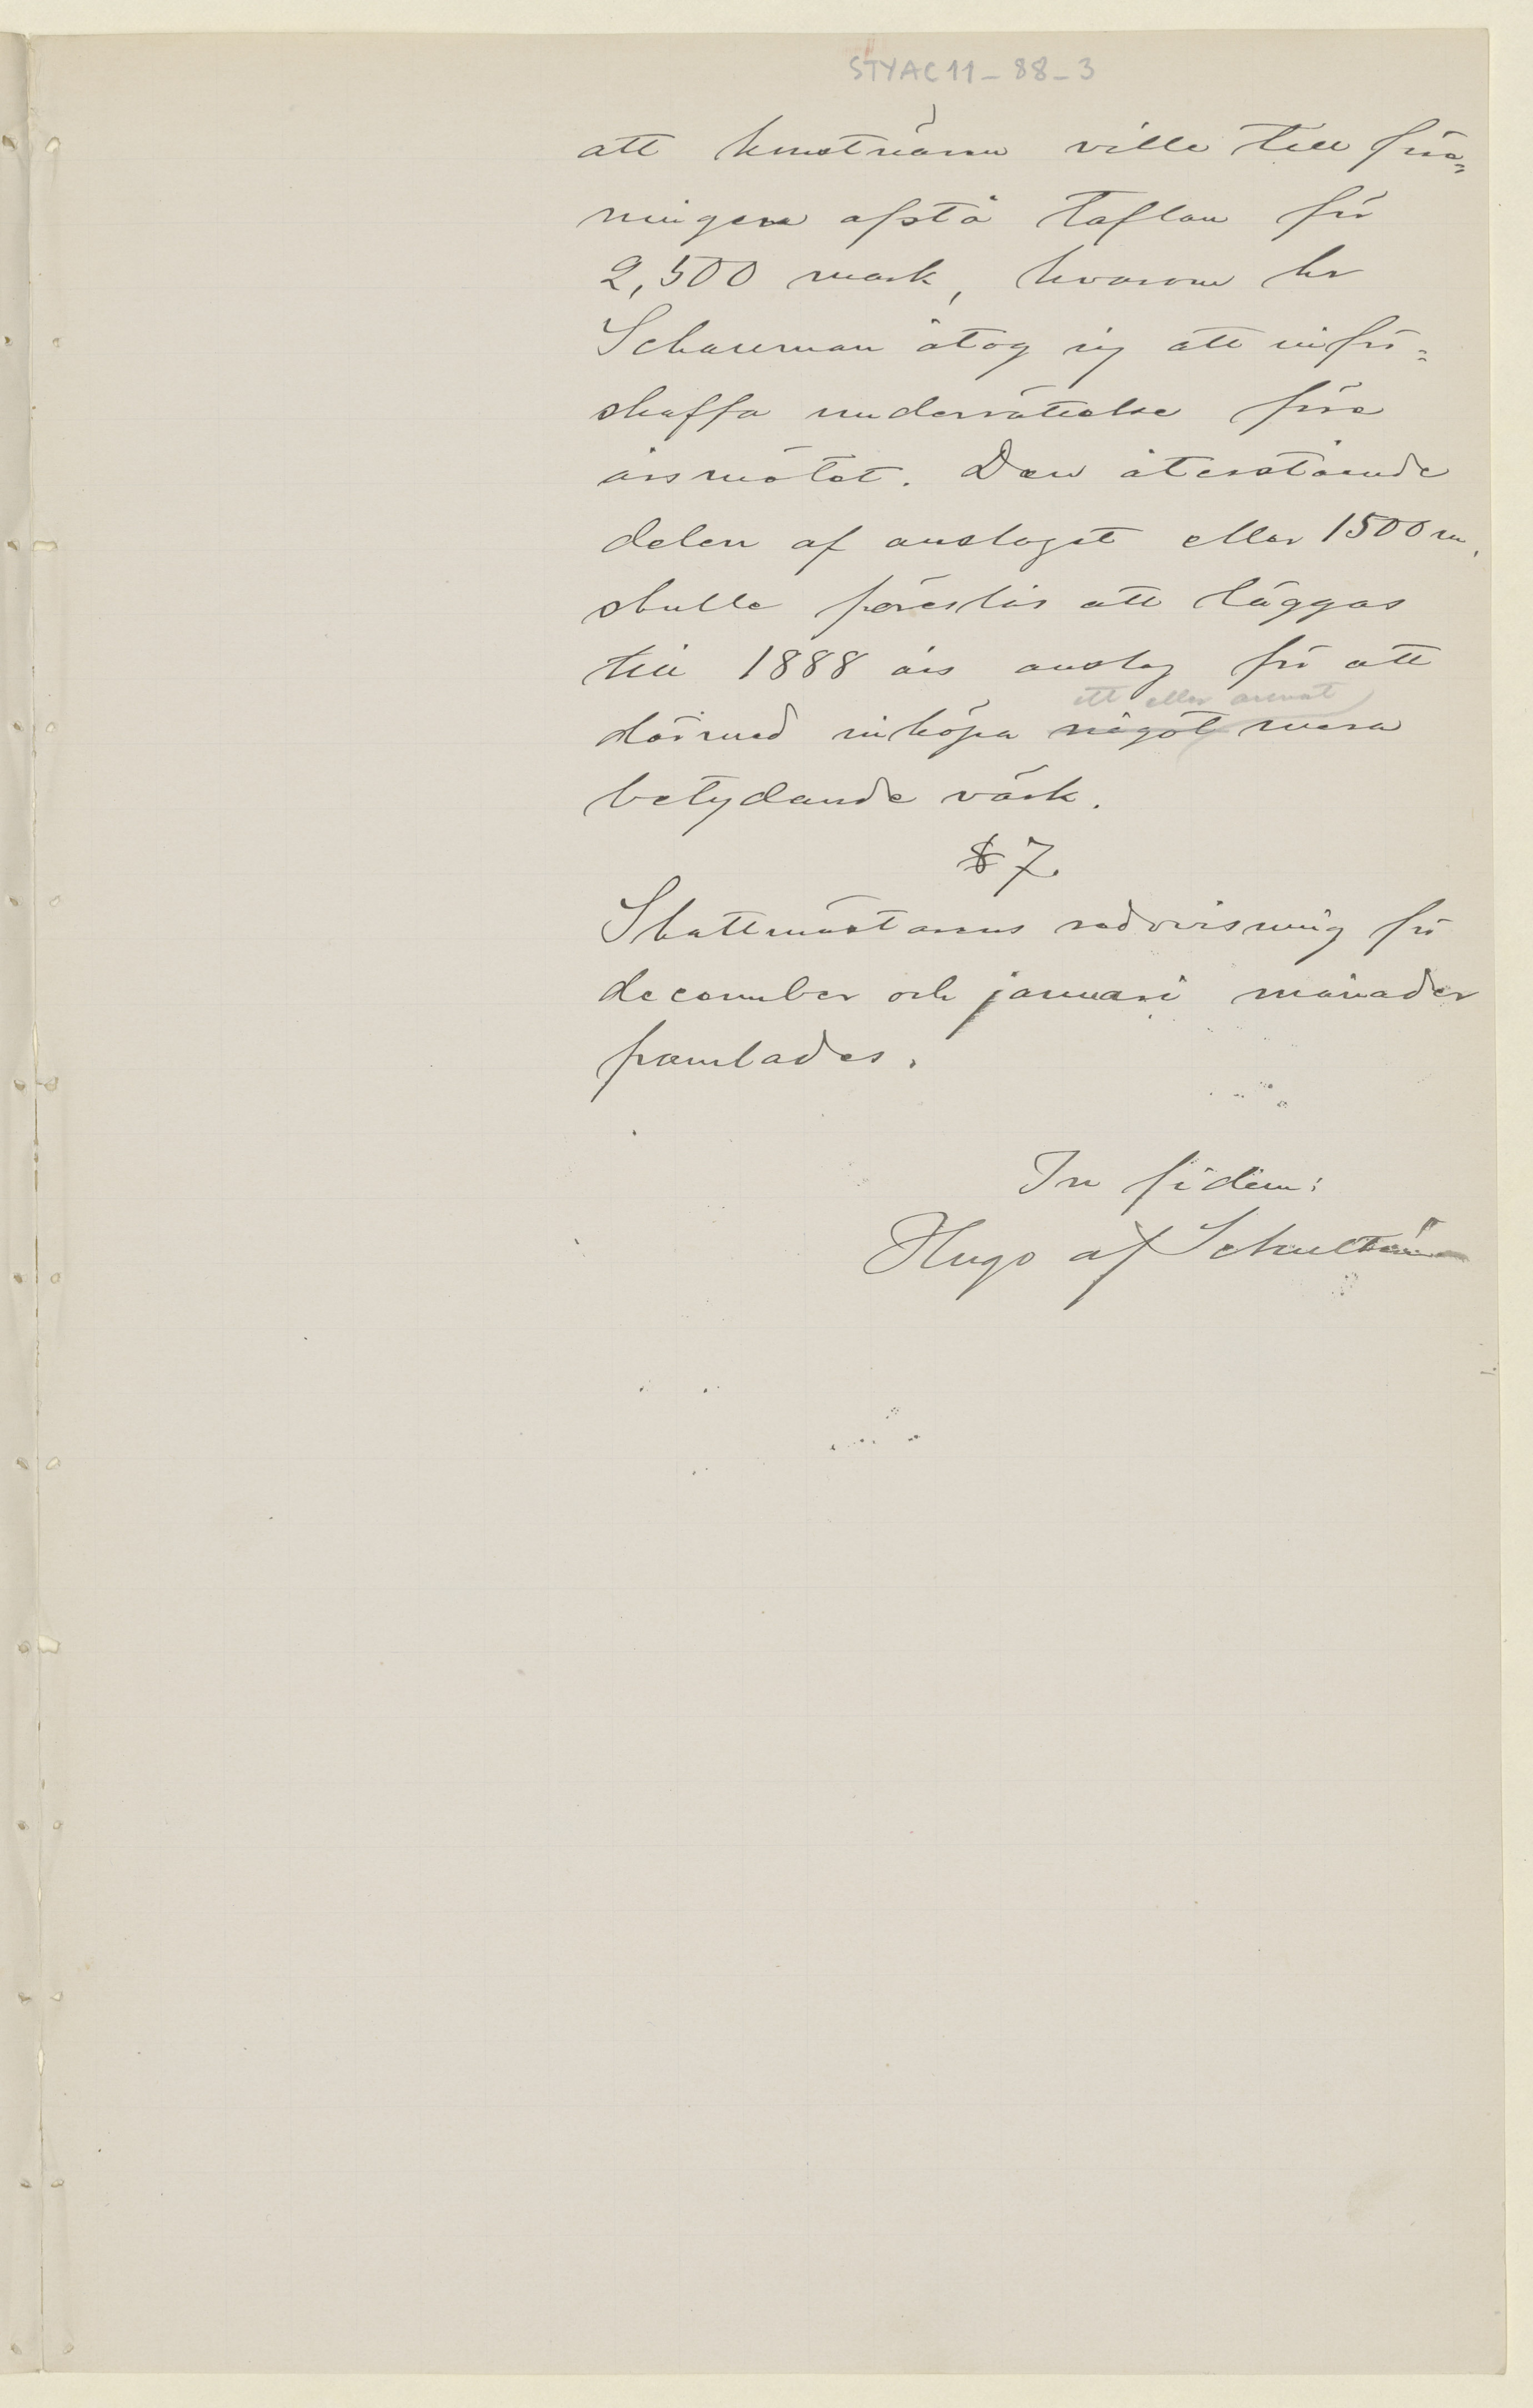 STYAC11_88_3
att konstnären ville till före=
ningen afstå taflan för
2,500 mark, hvarom hr
Schauman åtog sig att införr=
skaffa underrättelse före
årsmötet. Den återstående
delen af anslaget eller 1500 m.
skulle föreslås att läggas
till 1888 års anslag för att
ett eller annat
därmed inköpa något mera
betydande värk.
§ 7.
Skattmästarens redovisning för
december och januari månader
framlades.
In fidem:
Hugo af Schultén